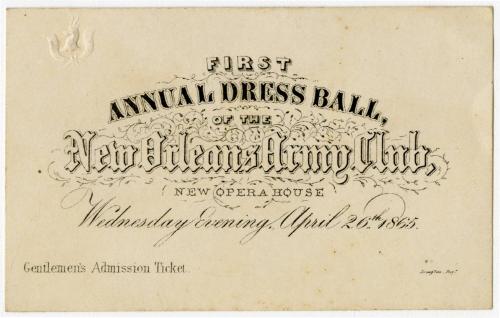 FIRST
ANNUAL DRESS BALL,
OF THE
New Orleans Army Club,
NEW OPERA HOUSE
Wednesday Evening, April 26th 1865.
Gentlemen's Admission Ticket.